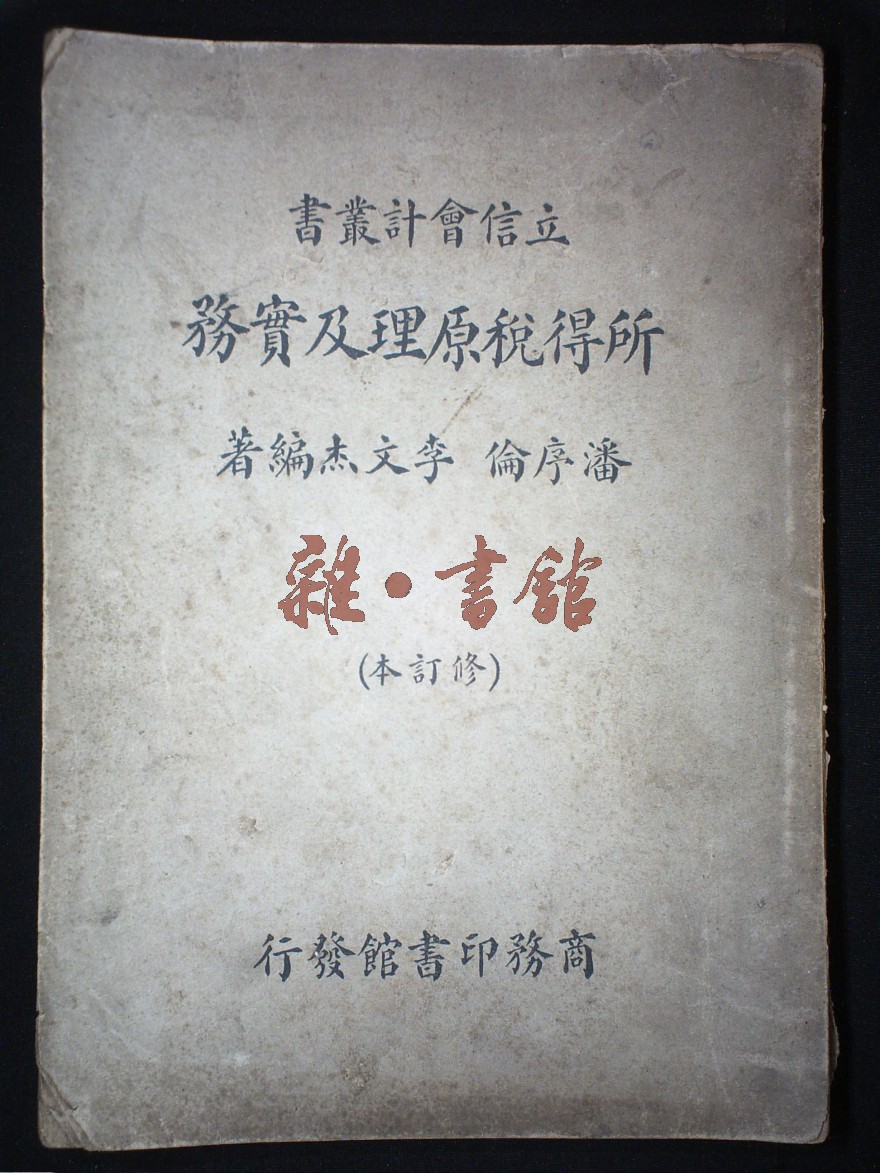 立信會計叢書
所得稅原理及實務
潘序倫 李文杰編著
雜·書館
(修訂本)
商務印書館發行